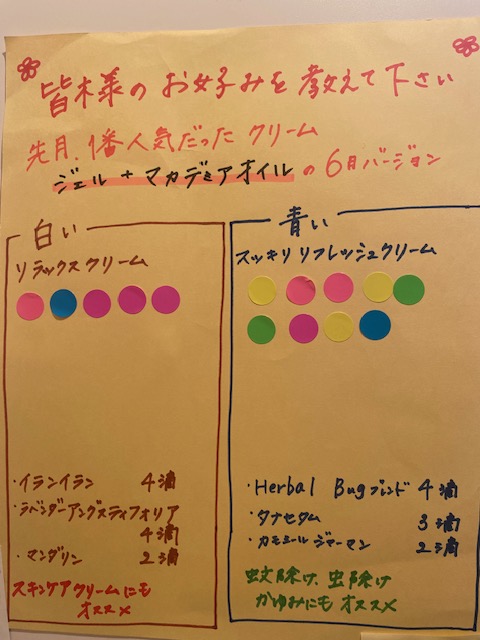 皆様のお好みを教えて下さい
先月、1番人気だったクリーム
ジェル+マカデミアオイルの6月バージョン
白い
リラックスクリーム
・イランイラン 4滴
・ラベンダーアングスティフォリア
4滴
・マンダリン 2滴
スキンケアクリームにも
オススメ
青い
スッキリリフレッシュクリーム
・Herbal Bugブレンド 4滴
・タナセタム 3滴
・カモミールジャーマン 2滴
蚊除け、虫除け
かゆみにもオススメ